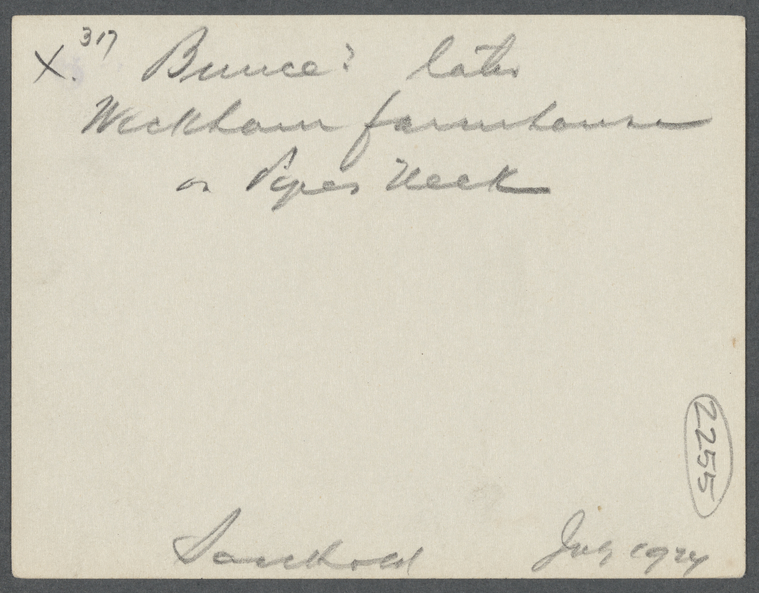 X. 317 Bunce? later
Wickham farmhouse
on Pipes Neck
2255
Southold July 1924